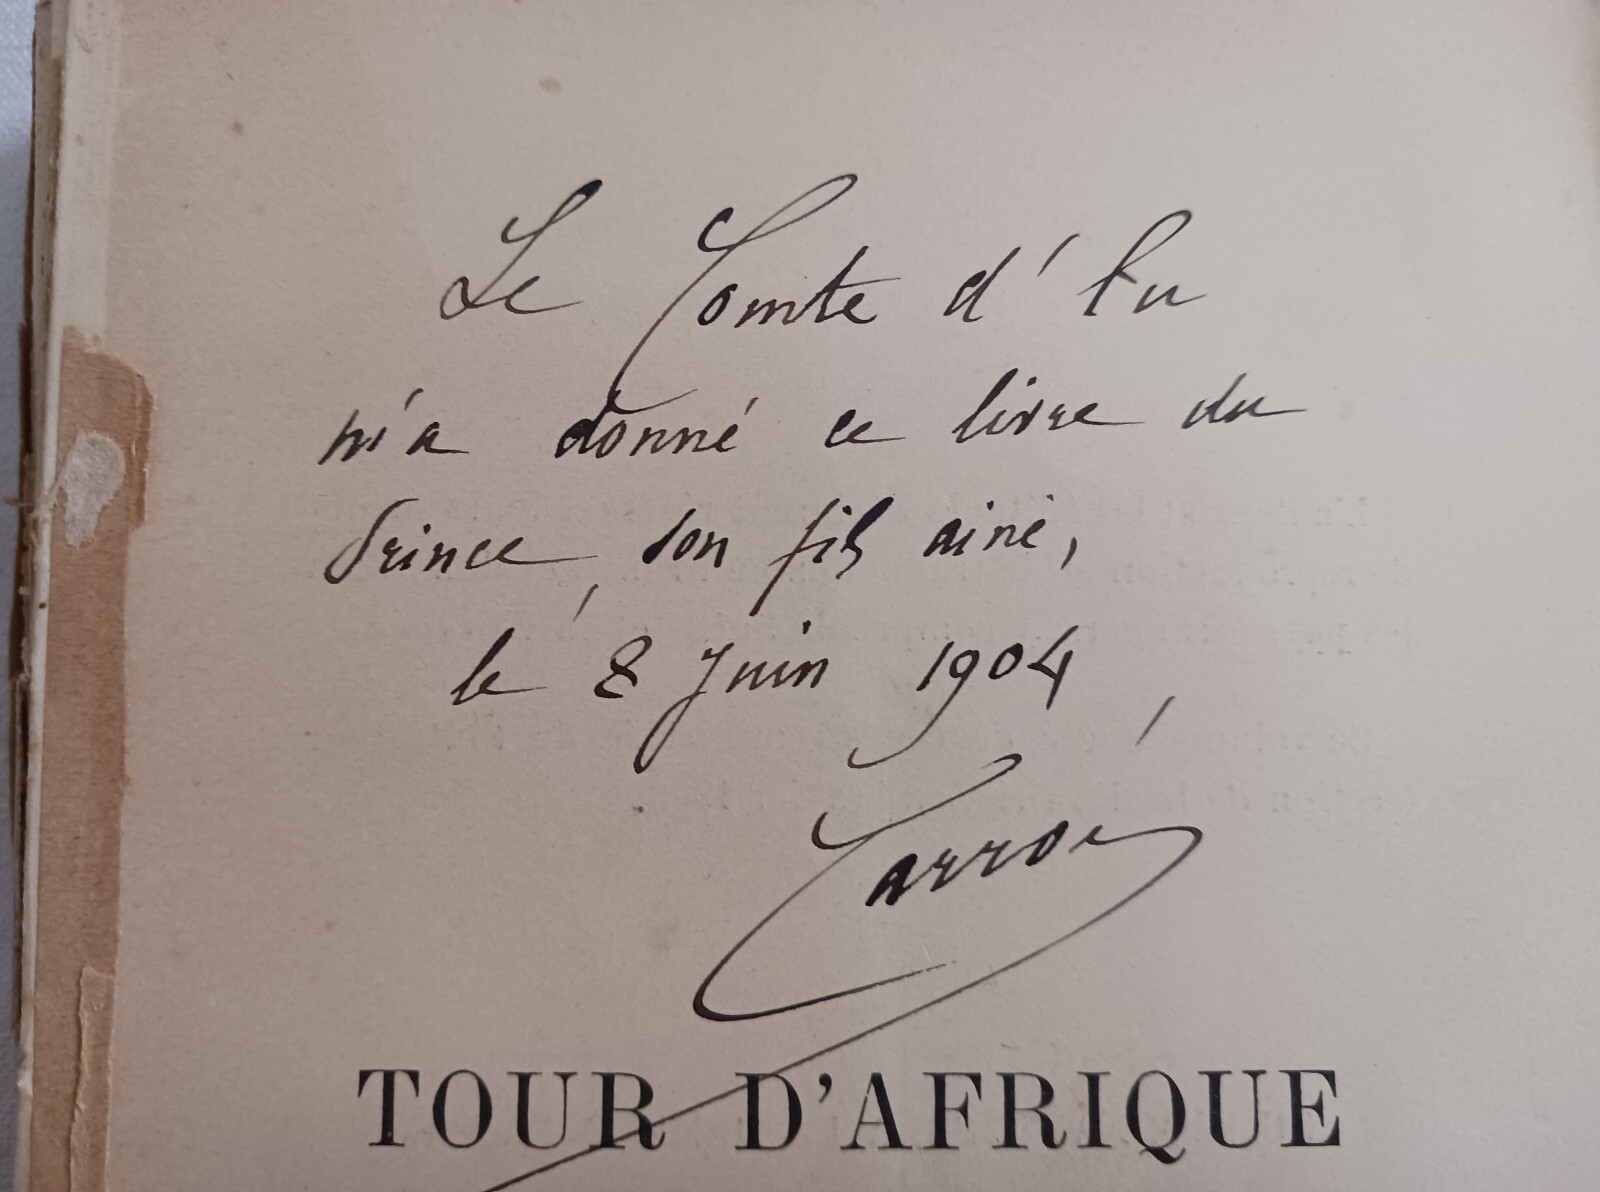 Le Comte d'Eu
m'a donné ce livre du
Prince, son fils ainé,
le 8 Juin 1904,
TOUR D'AFRIQUE